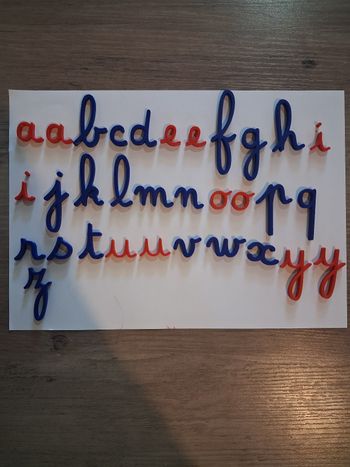 aabcdeefghi
ijklmnoopq
rstuuvwxyy
z